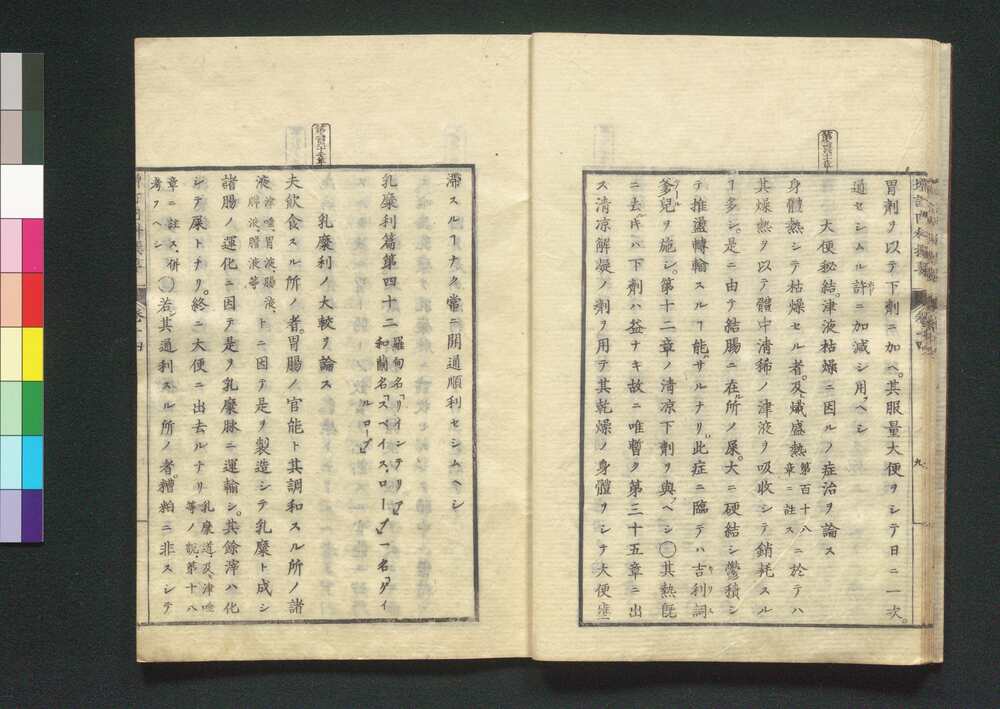 胃劑ヲ以テ下劑ニ加ヘ。其服量大便ヲシテ日ニ一次。
通セシムル許ニ加減シ用フヘシ
第百二十章
大便秘結。津液枯燥ニ因ルノ症治ヲ論ス
身體熱シテ枯燥セル者。及ヒ熾盛熱第百十八章ニ註スニ於テハ
其燥熱ヲ以テ體中清稀ノ津液ヲ吸收シテ銷耗スル
ヿ多シ。是ニ由テ結腸ニ在ル所ノ屎。大ニ硬結シ鬱積シ
テ推盪轉輸スルヿ能ハサルナリ。此症ニ臨テハ吉利詞
爹兒ヲ施シ。第十二章ノ清凉下劑ヲ與フヘシ○其熱既
ニ去ル片ハ下劑ハ益ナキ故ニ唯暫ク第三十五章ニ出
ス清凉解凝ノ劑ヲ用テ其乾燥ノ身體ヲシテ大便壅
九
滯スルヿナク常ニ開通順利セシムヘシ
乳糜利篇第四十二 羅甸名「リインテリア」和蘭名「スペイス、ロープ」一名「ダイルロープ」
乳糜利ノ大較ヲ論ス
夫飲食スル所ノ者。胃腸ノ官能ト其調和スル所ノ諸
液津唾、胃液、腸液、膵液、膽液等トニ因テ是ヲ製造シテ乳糜ト成シ
諸腸ノ運化ニ因テ是ヲ乳糜脉ニ運輸シ。其餘滓ハ化
シテ屎トナリ。終ニ大便ニ出去ルナリ乳糜道、及ヒ津唾等ノ說、第十八
章ニ註ス、併考フヘシ○若シ其通利スル所ノ者。糟粕ニ非スシテ